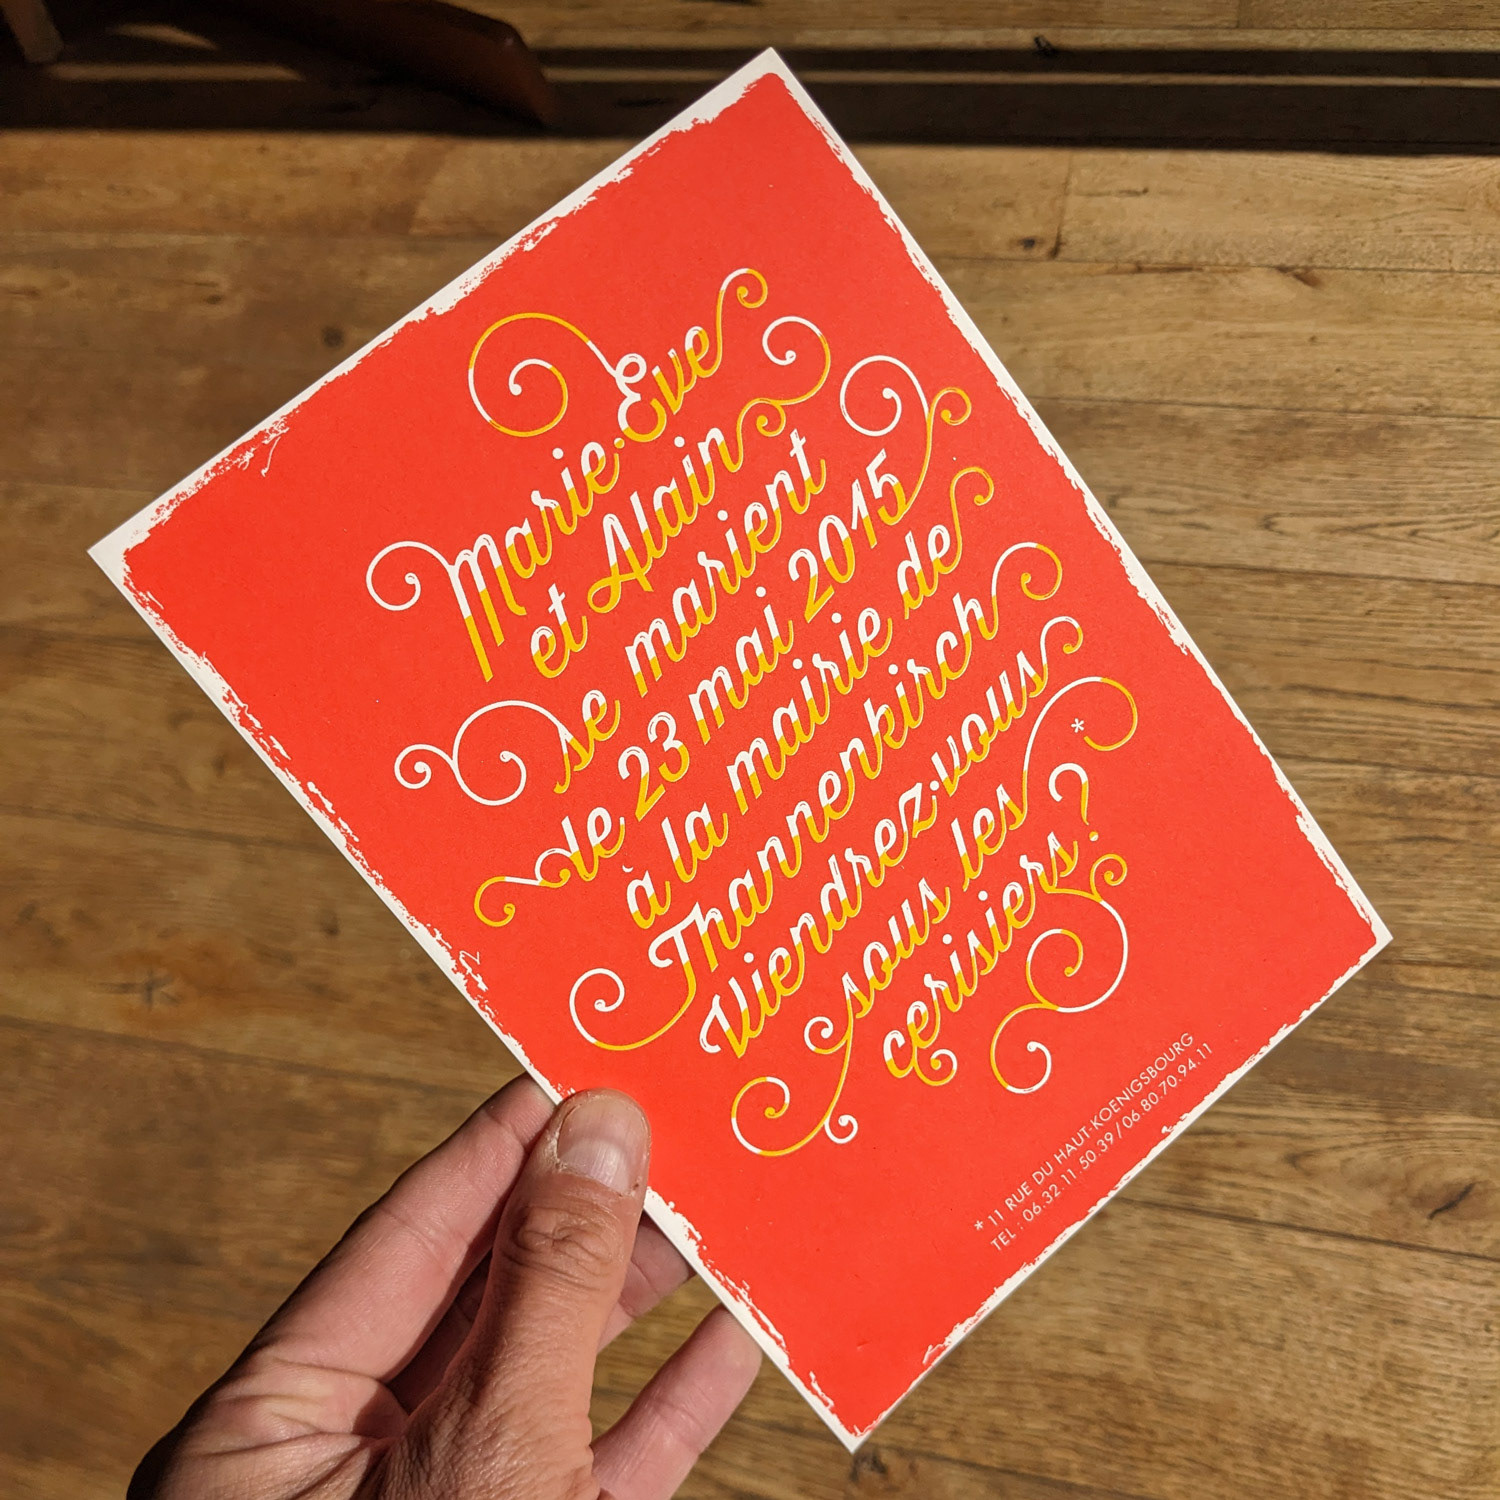 Marie-Eve
et Alain
se marient
le 23 mai 2015
à la mairie de
Thannenkirch
Viendrez-vous
sous les *
cerisiers?
* 11 RUE DU HAUT-KOENIGSBOURG
TEL : 06.32.11.50.39 / 06.80.70.94.11